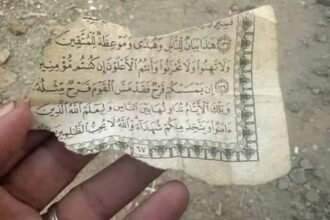 هَٰذَا بَيَانٌ لِّلنَّاسِ وَهُدًى وَمَوْعِظَةٌ لِّلْمُتَّقِينَ
وَلَا تَهِنُوا۟ وَلَا تَحْزَنُوا۟ وَأَنتُمُ ٱلْأَعْلَوْنَ إِن كُنتُم مُّؤْمِنِينَ
۝١٣٩ إِن يَمْسَسْكُمْ قَرْحٌ فَقَدْ مَسَّ ٱلْقَوْمَ قَرْحٌ مِّثْلُهُۥ
وَتِلْكَ ٱلْأَيَّامُ نُدَاوِلُهَا بَيْنَ ٱلنَّاسِ وَلِيَعْلَمَ ٱللَّهُ ٱلَّذِينَ
ءَامَنُوا۟ وَيَتَّخِذَ مِنكُمْ شُهَدَآءَ وَٱللَّهُ لَا يُحِبُّ ٱلظَّٰلِمِينَ
٦٧